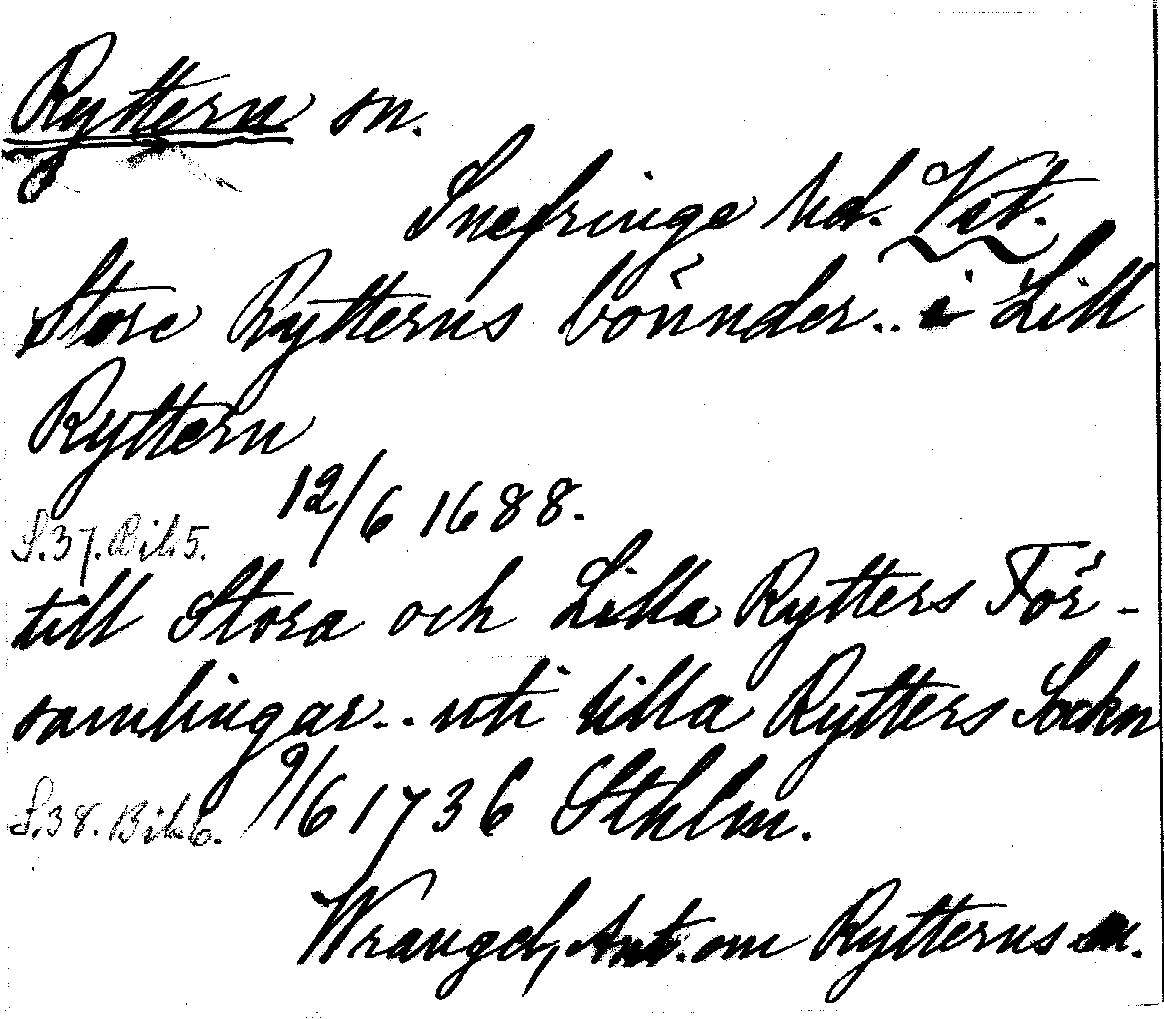 Ryttern sn.
Snefringe hd. Vst.
Store Rytterns bönder.. i Lill
Ryttern
12/6 1688.
S.37. Bil.5.
till Stora och Lilla Rytters För-
samlingar... uti Lilla Rytters Sokn
S.38. Bil.6. 9/6 1736 Sthlm.
Wrangel, Ant. om Rytterns sn.